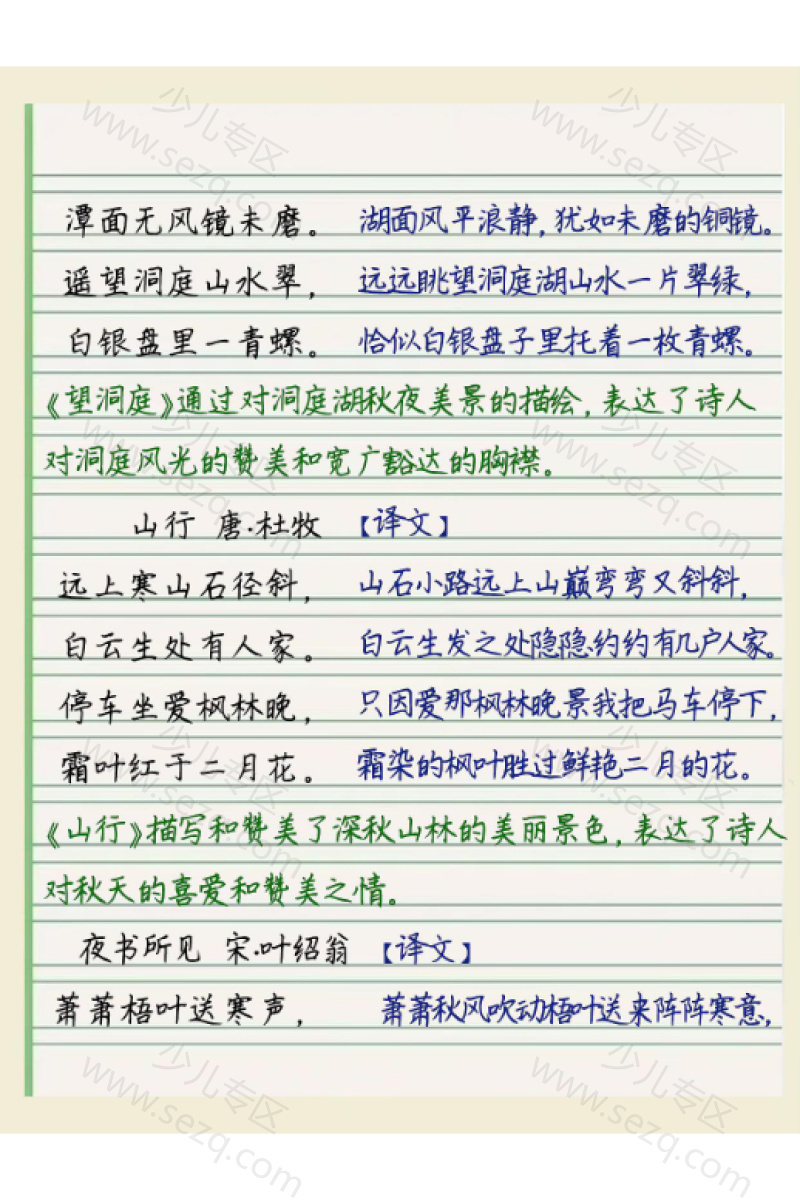 潭面无风镜未磨。 湖面风平浪静,犹如未磨的铜镜。
遥望洞庭山水翠, 远远眺望洞庭湖山水一片翠绿,
白银盘里一青螺。 恰似白银盘子里托着一枚青螺。
《望洞庭》通过对洞庭湖秋夜美景的描绘,表达了诗人
对洞庭风光的赞美和宽广豁达的胸襟。
山行 唐·杜牧 【译文】
远上寒山石径斜, 山石小路远上山巅弯弯又斜斜,
白云生处有人家。 白云生发之处隐隐约约有几户人家。
停车坐爱枫林晚, 只因爱那枫林晚景我把马车停下,
霜叶红于二月花。 霜染的枫叶胜过鲜艳二月的花。
《山行》描写和赞美了深秋山林的美丽景色,表达了诗人
对秋天的喜爱和赞美之情。
夜书所见 宋·叶绍翁 【译文】
萧萧梧叶送寒声, 萧萧秋风吹动梧叶送来阵阵寒意,
少儿专区
www.sezq.com
少儿专区
www.sezq.com
少儿专区
www.sezq.com
少儿专区
www.sezq.com
少儿专区
www.sezq.com
少儿专区
www.sezq.com
少儿专区
www.sezq.com
少儿专区
www.sezq.com